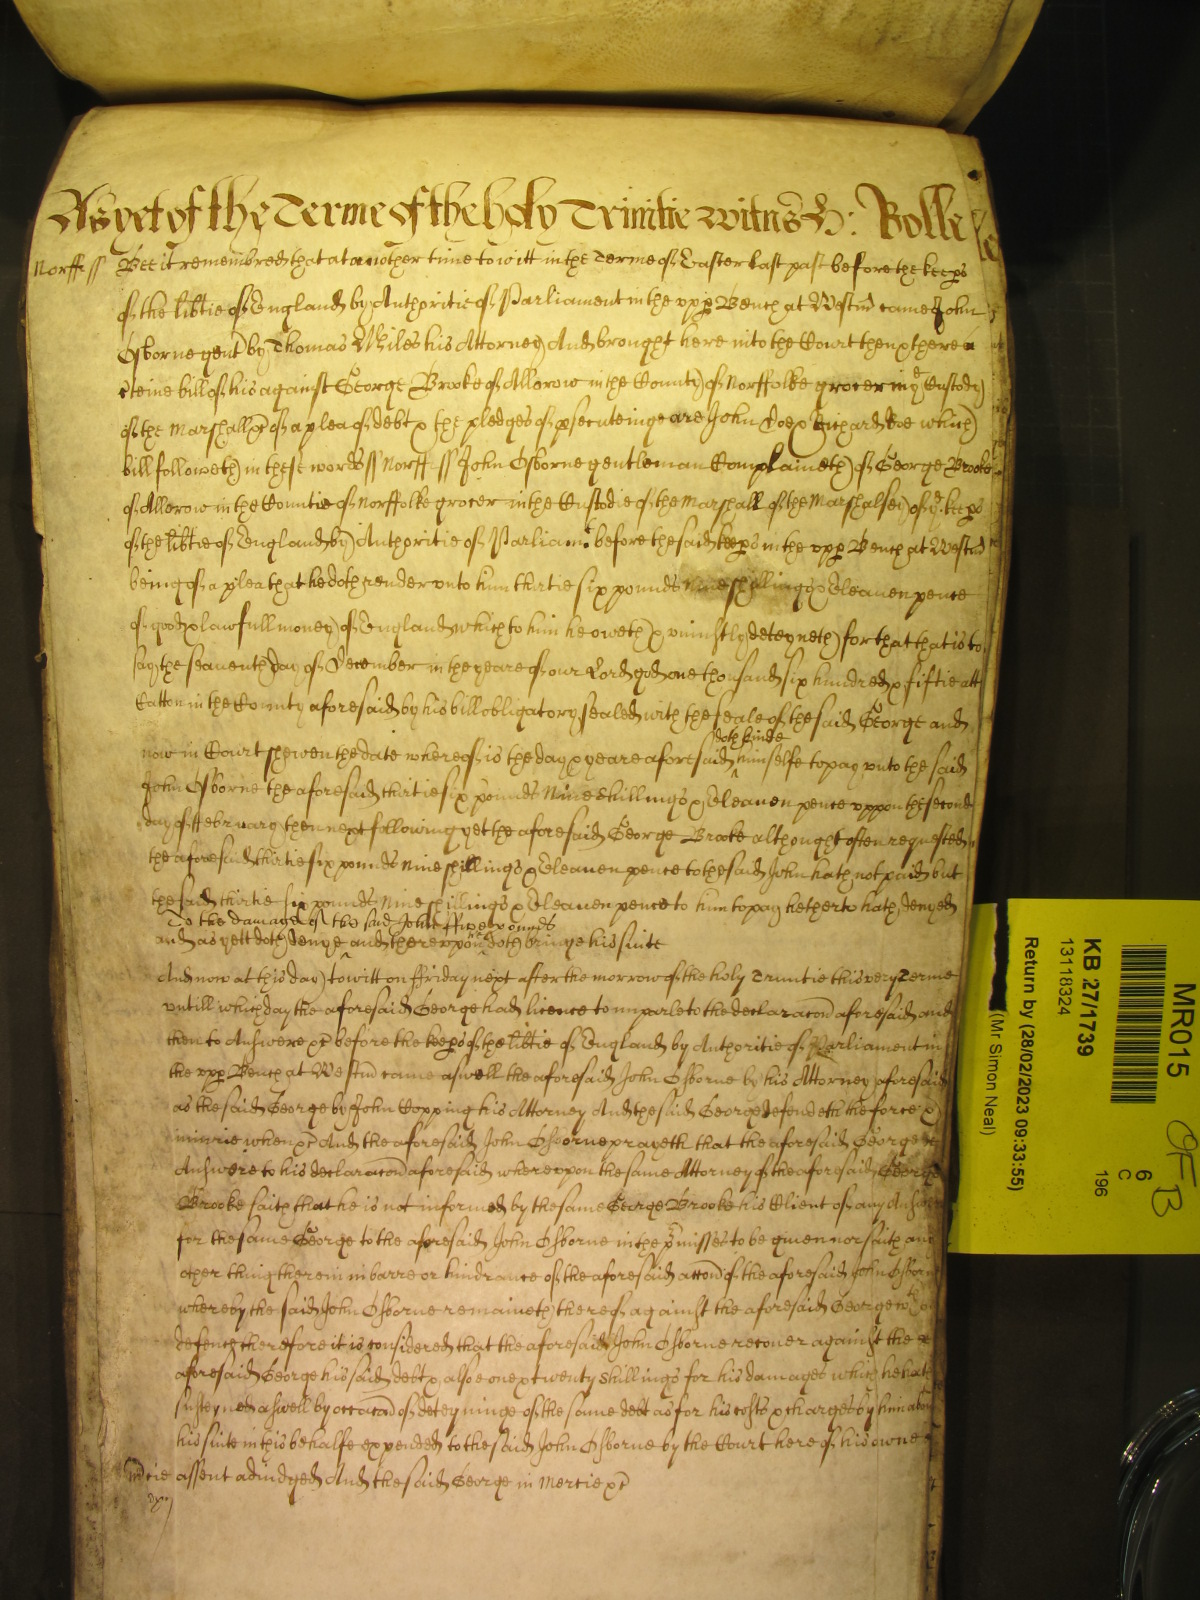 As yet of the Terme of the holy Trinitie witnes H: Rolle
Norff ss Bee it remembred that at another time to witt in the Terme of Easter last past before the keeps
of the libtie of England by Authoritie of Parliament in the upp Bench at Westm came John
Osborne gent by Thomas Miles his Attorney And brought here into the Court then & there a
cteine bill of his against George Brooke of Alborow in the County of Norffolke grocer in ye Custody
of the Marshall &c of a plea of debt & the pledges of psecuteinge are John Doe & Richard Roe which
bill followeth in these words ss Norff ss John Osborne gentleman Complaineth of George Brooke
of Alborow in the Countie of Norffolke grocer in the Custodie of the Marshall of the Marshalsey of ye keeps
of the libtie of England by Authoritie of Parliamt before the said keeps in the upp Bench at Westm
being of a plea that he doth render unto him thirtie six pounds Nine shillings & Eleauen pence
of good & lawfull money of England which to him he oweth & uniustly deteyneth for that that is to
say the seauenth day of December in the yeare of our Lord god one thousand six hundred & fiftie att
Catton in the County aforesaid by his bill obligatory sealed with the seale of the said George and
doth binde
now in Court shewen the date whereof is the day & yeare aforesaid himselfe to pay unto the said
John Osborne the aforesaid thirtie six pounds Nine shillings & Eleauen pence uppon the second
day of ffebruary then next following yet the aforesaid George Brooke althought often requested
the aforesaid thirtie six pounds nine shillings & Eleauen pence to the said John hath not paid but
the said thirtie six pounds Nine shillings & Eleauen pence to him to pay hetherto hath denyed
To the damage of the said John ffive pounds
and as yett doth denye and thereupon doth bringe his suite
And now at this day to witt on ffriday next after the morrow of the holy Trinitie this very Terme
untill which day the aforesaid George had licence to imparle to the declaracon aforesaid and
then to Answere &c before the keeps of the libtie of England by Authoritie of Parliament in
the upp Bench at Westm came aswell the aforesaid John Osborne by his Attorney aforesaid
as the said George by John Copping his Attorney And the said George defendeth the force &
iniurie when &c And the aforesaid John Osborne prayeth that the aforesaid George
Answere to his declaracon aforesaid whereupon the same Attorney of the aforesaid George
Brooke saith that he is not informed by the same George Brooke his Client of any Answere
for the same George to the aforesaid John Osborne in the pmisses to be given nor saith any
other thing therein in barre or hindrance of the aforesaid accon of the aforesaid John Osborne
whereby the said John Osborne remaineth thereof against the aforesaid George wthout
defence therefore it is considered that the aforesaid John Osborne recouer against the
aforesaid George his said debt & alsoe one & twenty shillings for his damages which he hath
susteyned aswell by occacon of deteyninge of the same debt as for his costs & charges by him about
his suite in this behalfe expended to the said John Osborne by the Court here of his owne
mcie assent adiudged And the said George in Mercie &c
MR015
KB 27/1739
13118324
Return by (28/02/2023 09:33:55)
(Mr Simon Neal)
6
C
196
OFB